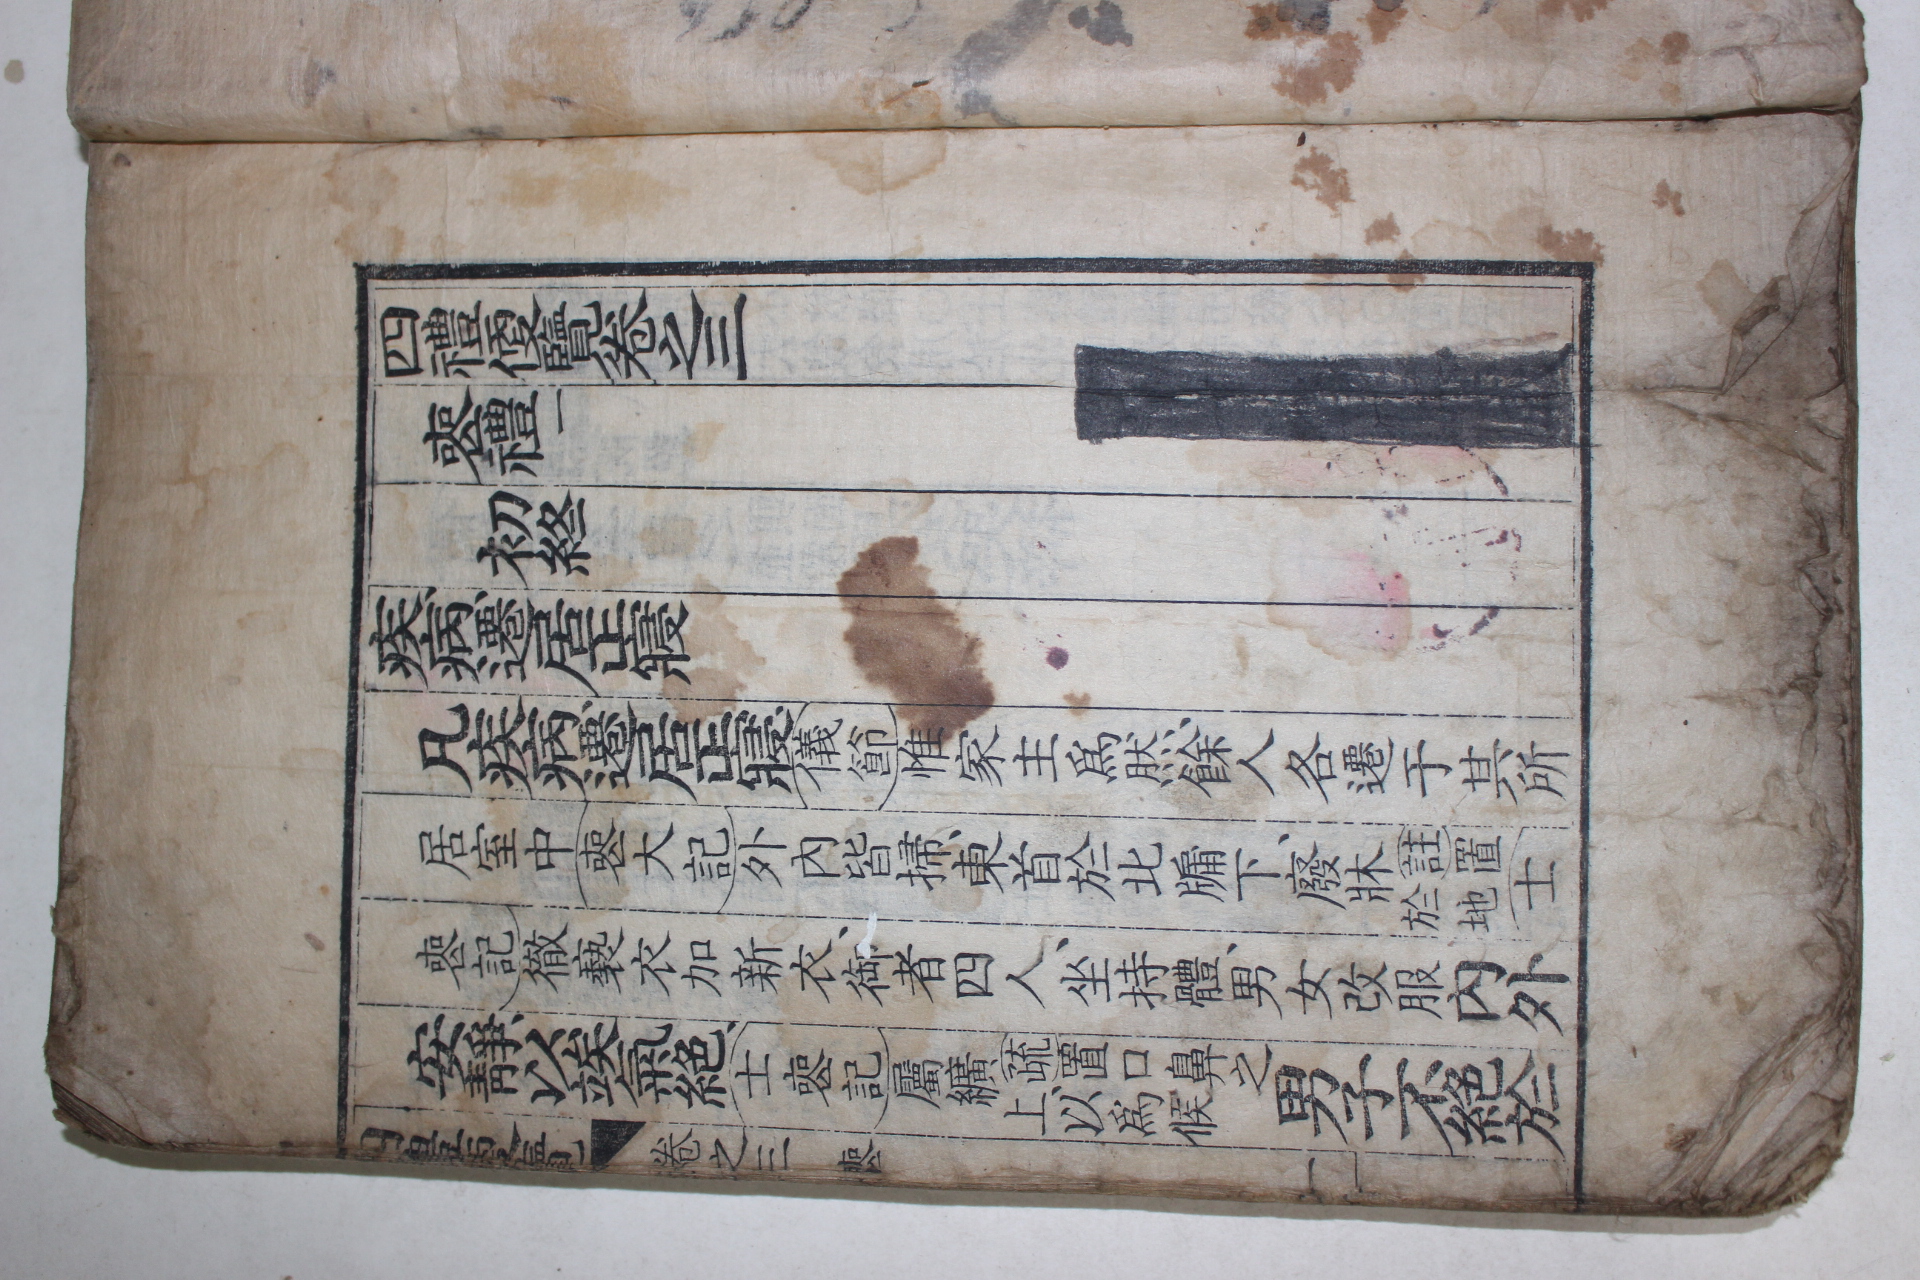 四禮便覽卷之三
喪禮一
初終
疾病遷居正寢
凡疾病遷居正寢儀節惟家主爲然餘人各遷于其所
居室中喪大記外內皆掃東首於北牖下廢牀註置於地士
喪記徹褻衣加新衣御者四人坐持體男女改服內外
安靜以竢氣絕士喪記屬纊疏置口鼻之上以爲候男子不絕於
四禮便覽 卷之三 喪 一